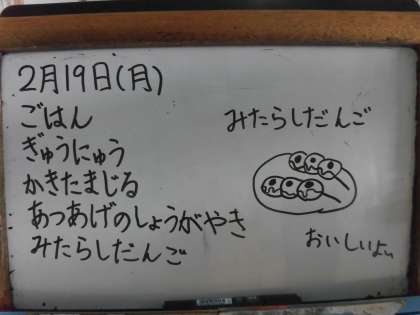 2月19日(月)
ごはん
ぎゅうにゅう
かきたまじる
あつあげのしょうがやき
みたらしだんご
みたらしだんご
おいしいよぃ